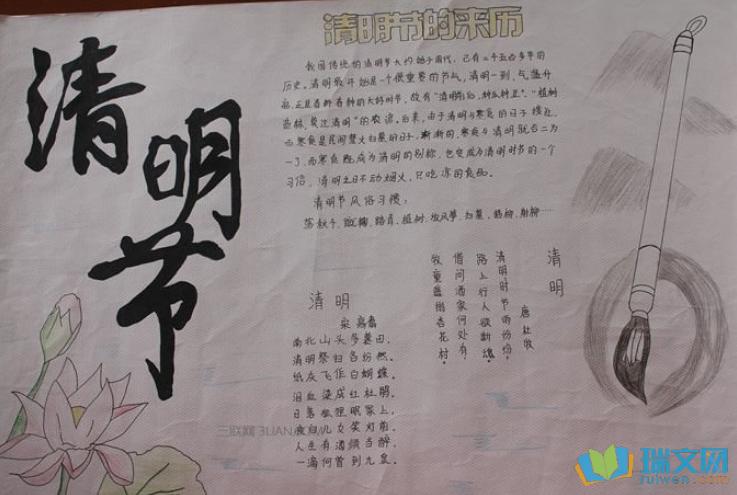 清明节
清明节的来历
我国传统的清明节大约始于周代，已有二千五百多年的
历史。清明最开始是一个很重要的节气，清明一到，气温升
高，正是春耕春种的大好时节，故有“清明前后，种瓜种豆”。“植树
造林，莫过清明”的农谚。后来，由于清明与寒食的日子接近，
而寒食是民间禁火扫墓的日子，渐渐的，寒食与清明就合二为
一了，而寒食既成为清明的别称，也变成为清明时节的一个
习俗，清明之日不动烟火，只吃凉的食品。
清明节风俗习惯：
荡秋千、蹴鞠、踏青、植树、放风筝、扫墓、插柳、射柳……
清明
唐 杜牧
清明时节雨纷纷，
路上行人欲断魂。
借问酒家何处有，
牧童遥指杏花村。
清明
宋 高翥
南北山头多墓田，
清明祭扫各纷然。
纸灰飞作白蝴蝶，
泪血染成红杜鹃。
日暮狐狸眠冢上，
夜归儿女笑灯前。
人生有酒须当醉，
一滴何曾到九泉。
三联网 3LIAN
瑞文网
ruiwen.com